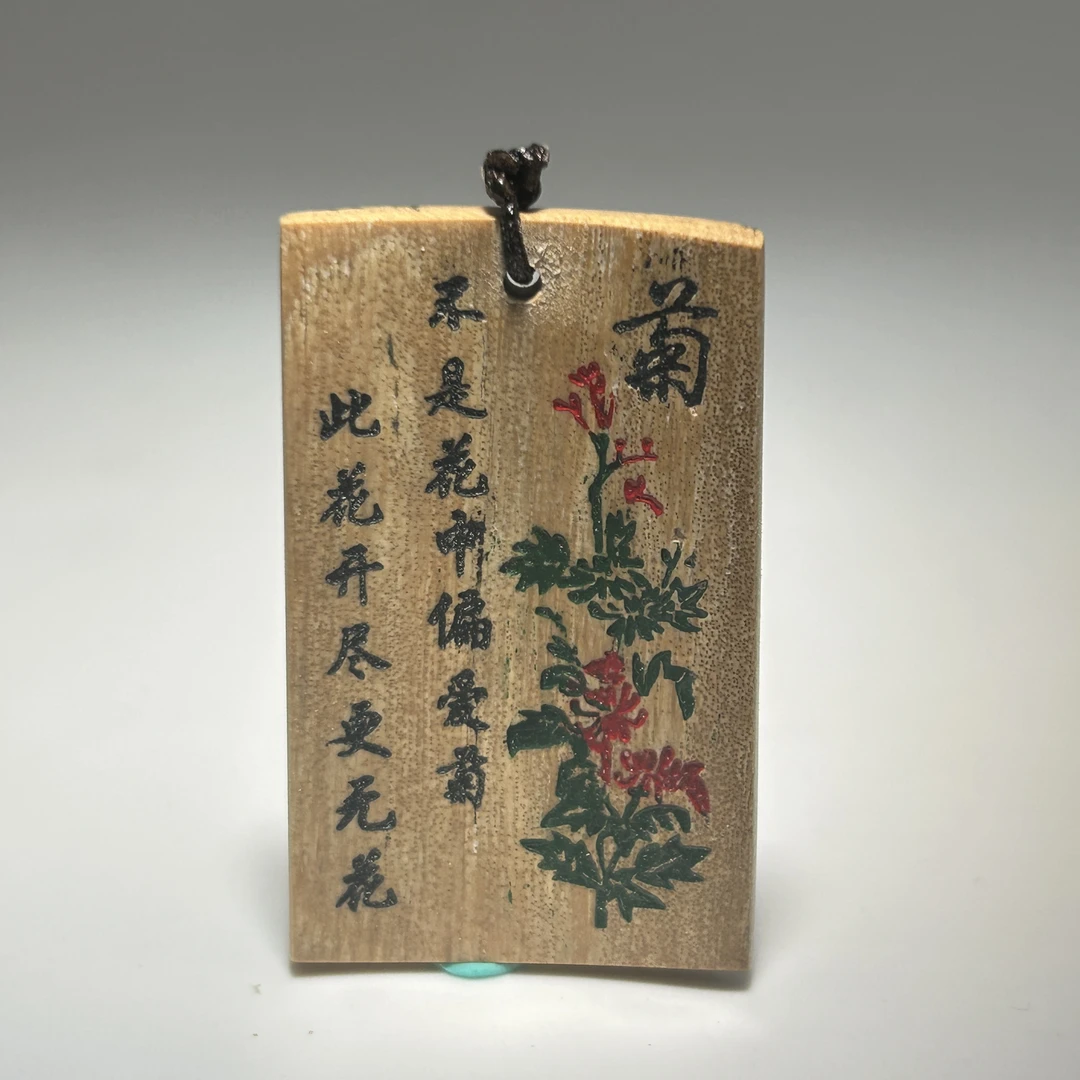 菊
不是花中偏爱菊
此花开尽更无花